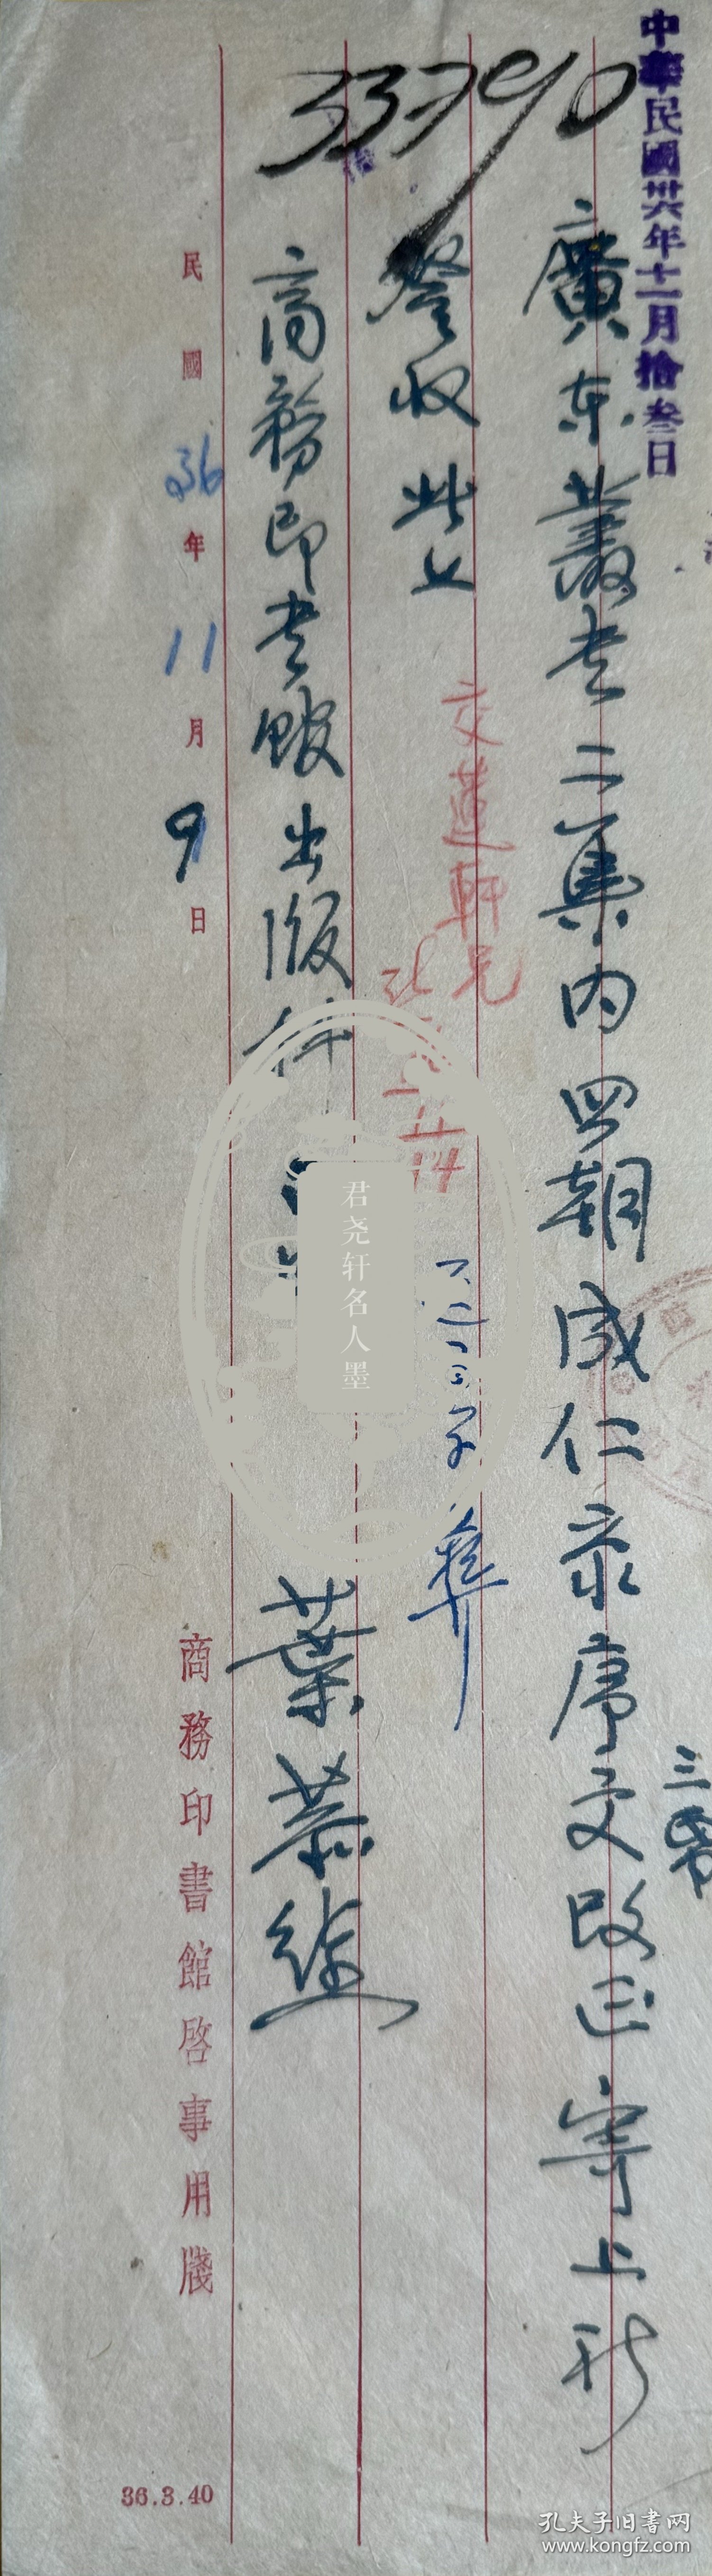 中華民國卅六年十一月拾叁日
33790
廣东叢书二集内四朝成仁录序文改正寄上祈
三帋
詧收此上
交蓮軒兄
11/14
商務印书館出版科
葉恭綽
民國36年11月9日
商務印書館啓事用牋
36.3.40
君尧轩名人墨
孔夫子旧书网
www.kongfz.com